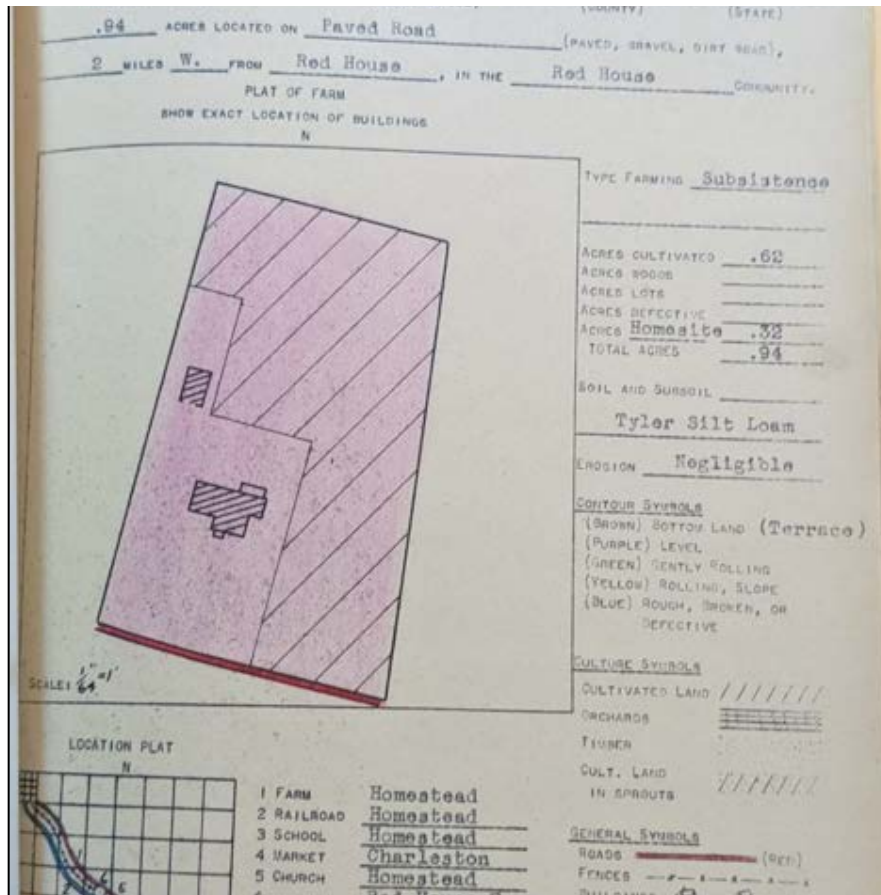 (COUNTY) (STATE)
.94 ACRES LOCATED ON Paved Road (PAVED, GRAVEL, DIRT ROAD),
2 MILES W. FROM Red House, IN THE Red House COMMUNITY.
PLAT OF FARM
SHOW EXACT LOCATION OF BUILDINGS
N
TYPE FARMING Subsistence
ACRES CULTIVATED .62
ACRES WOODS
ACRES LOTS
ACRES DEFECTIVE
ACRES Homesite .32
TOTAL ACRES .94
SOIL AND SUBSOIL
Tyler Silt Loam
EROSION Negligible
CONTOUR SYMBOLS
(BROWN) BOTTOM LAND (Terrace)
(PURPLE) LEVEL
(GREEN) GENTLY ROLLING
(YELLOW) ROLLING, SLOPE
(BLUE) ROUGH, BROKEN, OR
DEFECTIVE
SCALE: 1/64"=1'
CULTURE SYMBOLS
CULTIVATED LAND
ORCHARDS
TIMBER
CULT. LAND
IN SPROUTS
LOCATION PLAT
N
1 FARM Homestead
2 RAILROAD Homestead
3 SCHOOL Homestead
4 MARKET Charleston
5 CHURCH Homestead
GENERAL SYMBOLS
ROADS (RED)
FENCES